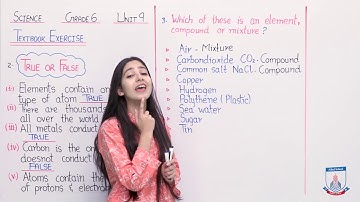 SCIENCE GRADE 6 UNIT 9
TEXTBOOK EXERCISE
2. TRUE OR FALSE
(i) Elements contain on
type of atom TRUE
(ii) There are thousands
all over the world
(iii) All metals conduct
TRUE
(iv) Carbon is the on
doesnot conduct
FALSE
(v) Atoms contain the
of protons & electron
3. Which of these is an element,
compound or mixture?
Air - Mixture
Carbondioxide CO₂ - Compound
Common salt NaCl - Compound
Copper
Hydrogen
Polythene (Plastic)
Sea water
Sugar
Tin